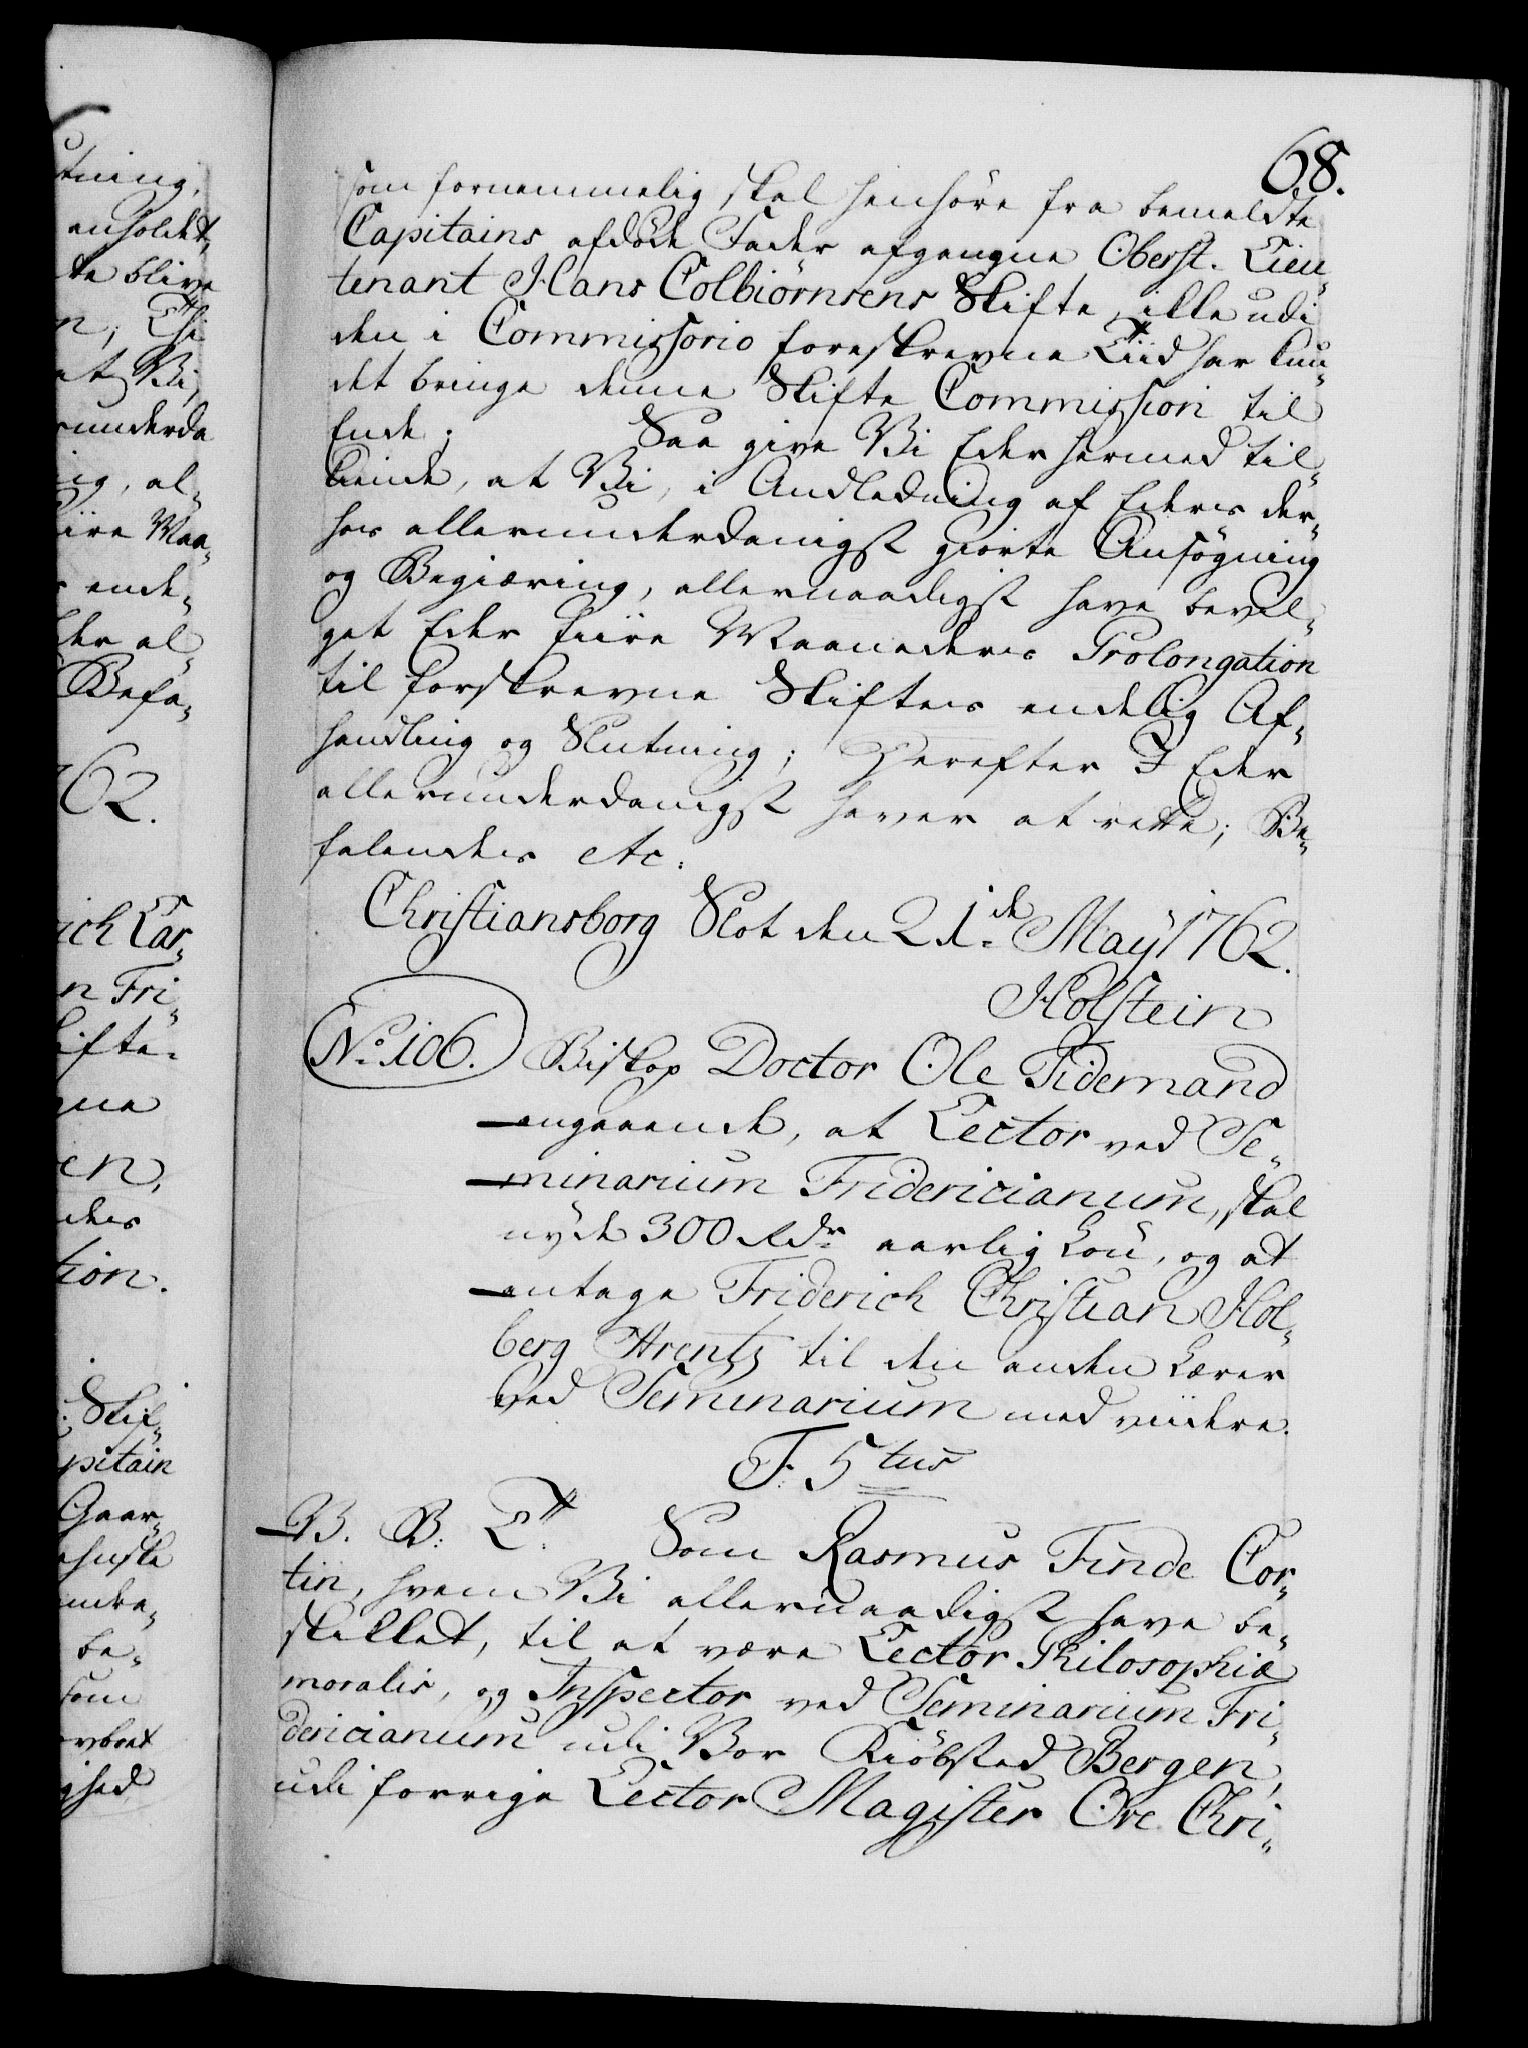 68.
som fornemmelig skal henhöre fra bemeldte
Capitains afdöde Fader afgangne Oberst. Lieu-
tenant Hans Colbiörnsens Skifte, ikke udi
den i Commissorio foreskrevne Tiid har kun-
det bringe denne Skifte Commission til
Ende; Saa give Vi Eder hermed til-
kiende, at Vi, i Andledning af Eders der-
hos allerunderdanigst giorte Ansögning
og Begiæring, allernaadigst have bevil-
get Eder fiire Maaneders Prolongation
til forskrevne Skiftes endelig Af-
handling og Slutning; Herefter I Eder
allerunderdanigst haver at rette; Be-
falendes etc:
Christiansborg Slot den 21de May 1762.
Holstein
No. 106. Biskop Doctor Ole Tidemand
angaaende, at Lector ved Se-
minarium Fridericianum, skal
nyde 300 Rdr aarlig Lön, og at
antage Friderich Christian Hol-
berg Arentz til den anden Lærer
ved Seminarium med viidere.
F. 5tus
V. B: T. Som Rasmus Finde Cor-
tin, hvem Vi allernaadigst have be-
skikket, til at være Lector Philosophiæ
moralis, og Inspector ved Seminarium Fri-
dericianum udi Vor Kiöbsted Bergen,
udi forrige Lector Magister Ove Chri-
tning,
anholdet,
te blive
n, Thi
at Vi,
runderda
ig, al-
iire Maa-
s ende-
der al-
Befa-
762.
rich Car-
n Fri-
ifte-
gne
en,
ders
tion.
Skif-
pitain
Gaar-
be-
som
ghed